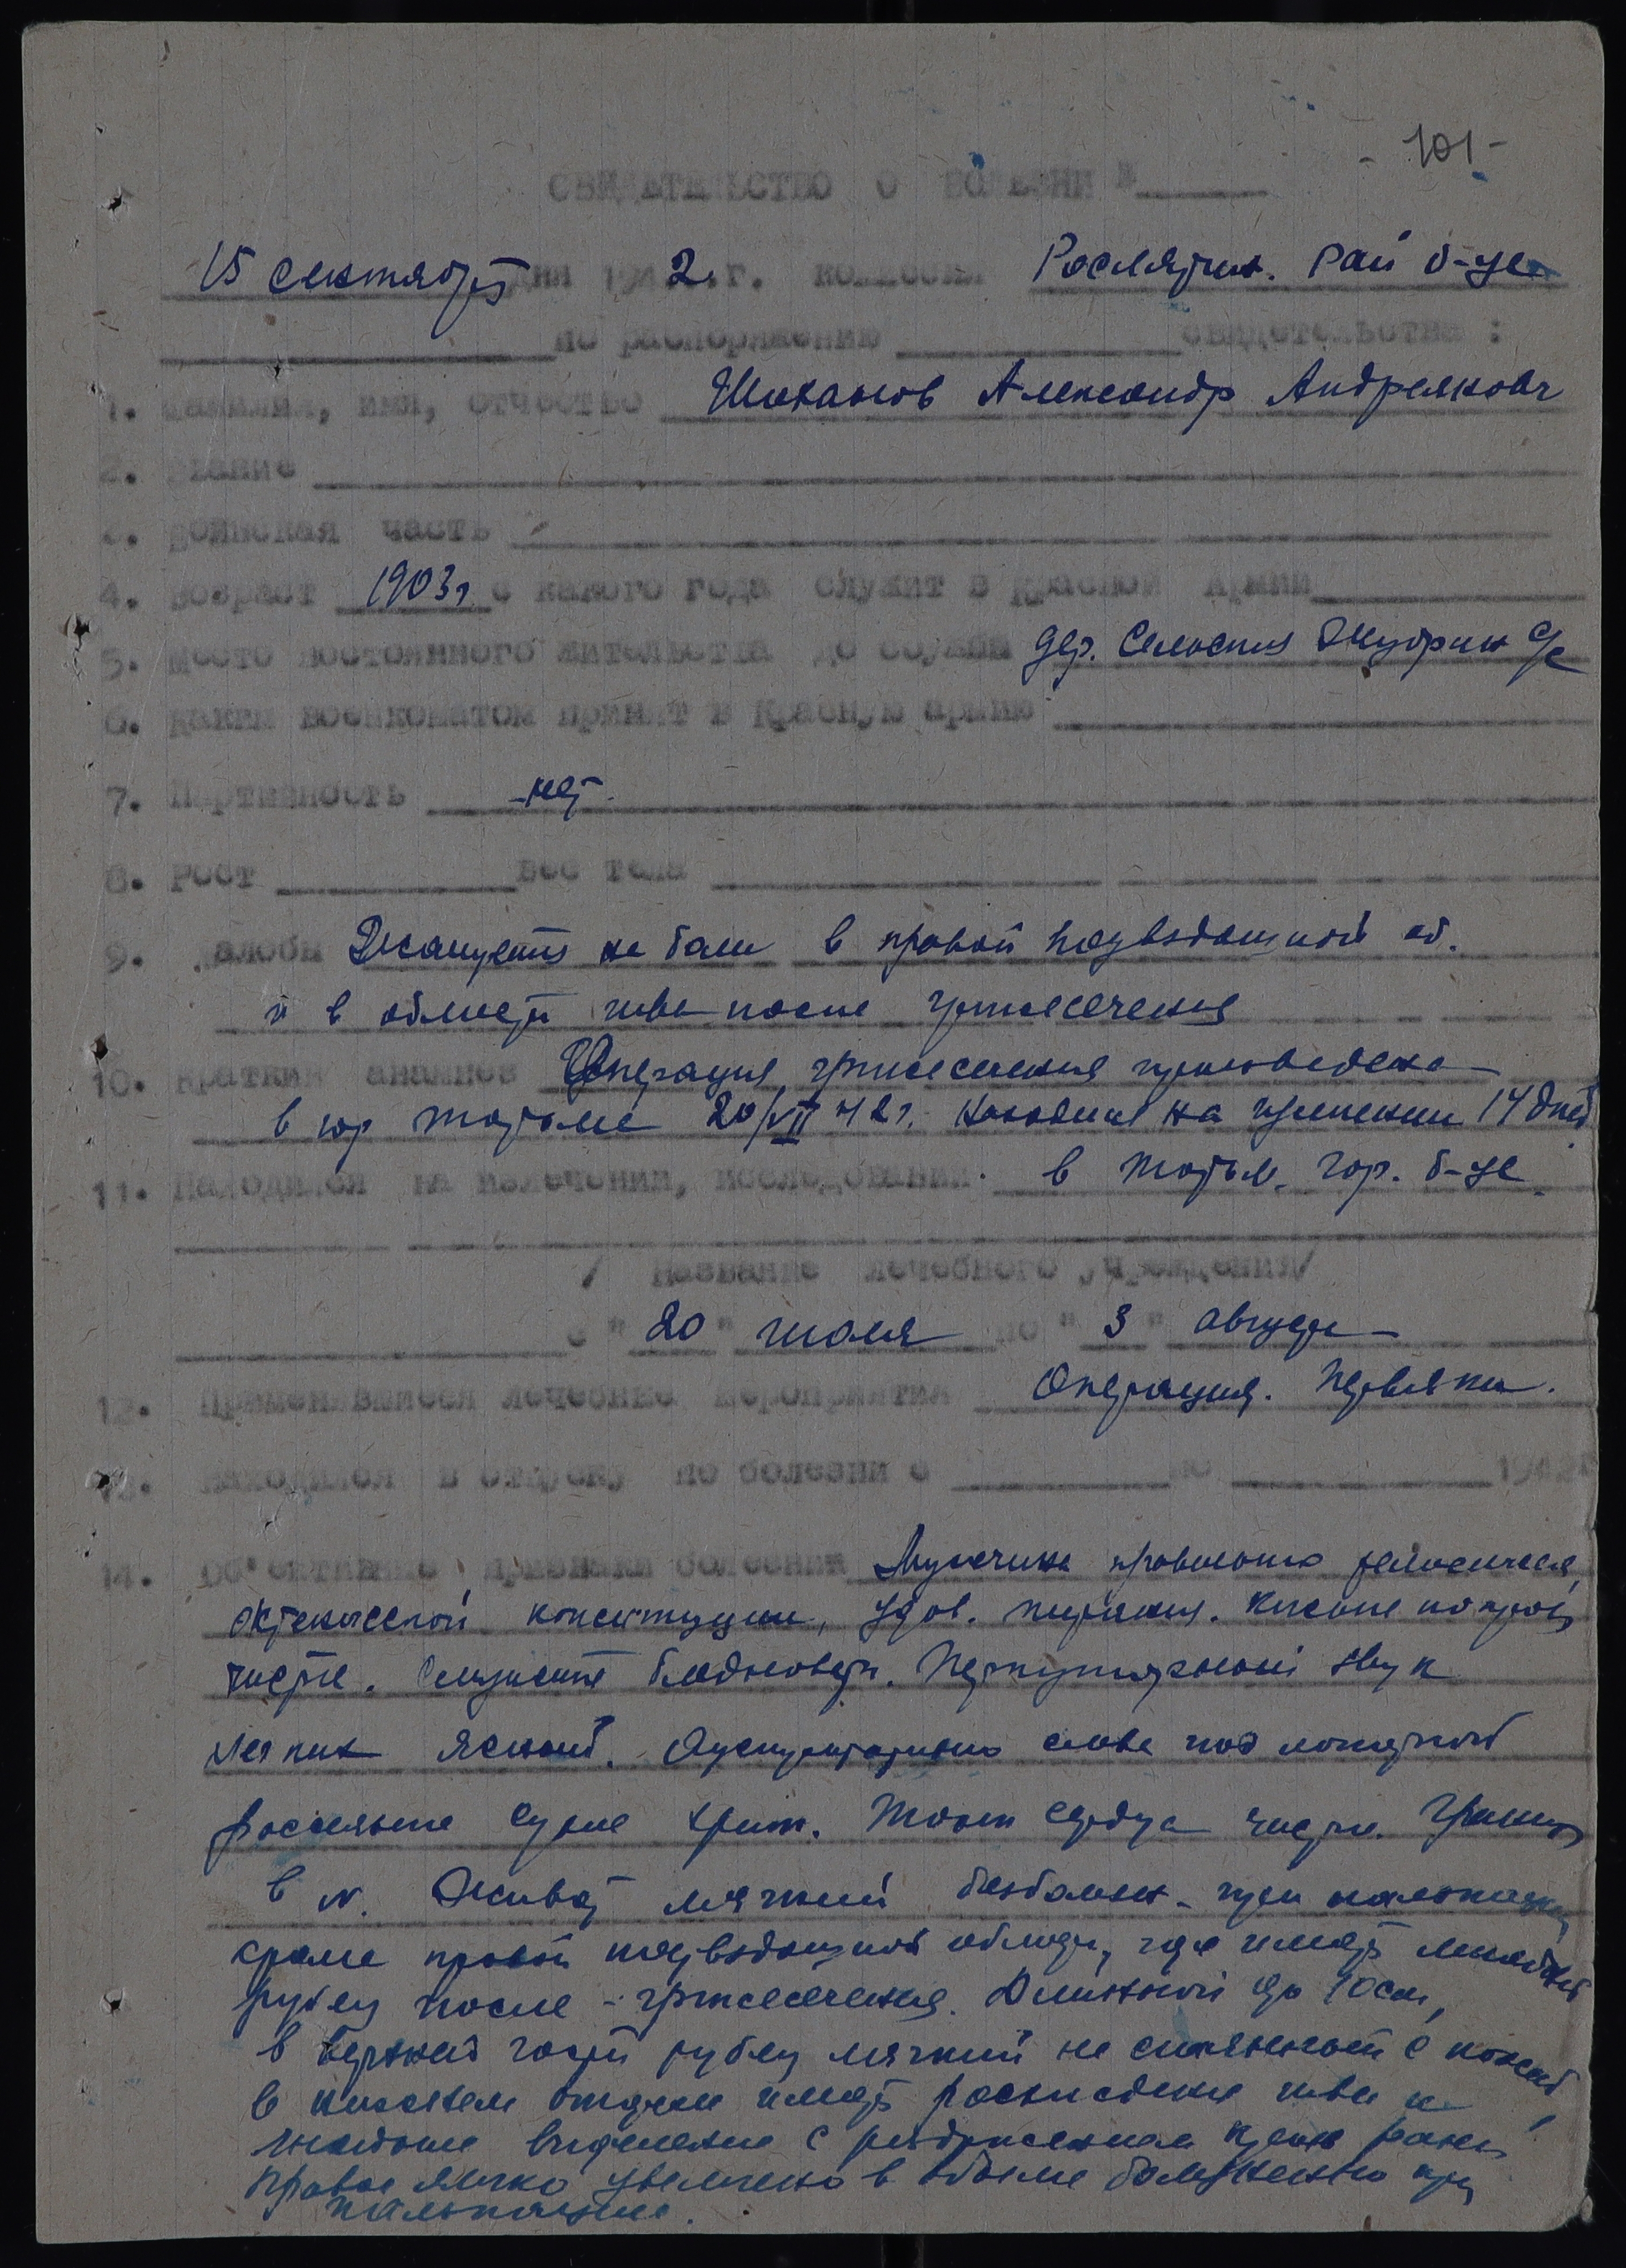 - 101 -
СВИДЕТЕЛЬСТВО О БОЛЕЗНИ №
15 сентября дня 1942 г. комиссия Рослятин. Рай б-це
по распоряжению свидетельства :
1. Фамилия, имя, отчество Шаканов Александр Андреянович
2. Звание
3. Воинская часть
4. Возраст 1903г с какого года служит в Красной Армии
5. Место постоянного жительства до службы дер. с/с
6. Каким военкоматом принят в Красную армию
7. Партийность -нет-
8. Рост вес тела
9. Жалобы Жалуется на боли в правой подвздошной об.
и в области шва после грыжесечения
10. Краткий анамнез Операция грыжесечения произведена
в гор Тотьме 20/VII 42г. находился на излечении 14 дней
11. Находился на излечении, исследовании. в Тотьм. гор. б-це.
/ Название лечебного учреждения/
с " 20 " июля по " 3 " августа
12. Применявшиеся лечебные мероприятия Операция. Перевязки.
13. Находился в отпуску по болезни с по 194
14. Об'ективные признаки болезни Мужчина правильного телосложен.
конституции, удов. питания. Кожные покровы
чисты. Слизистые бледноваты. Перкуторный звук
легких ясный. Аускультативно слева под лопаткой
рассеяные сухие хрип. Тоны сердца чисты. Границы
в N. Живот мягкий безболезн. при пальпации
кроме правой подвздошной области, где имеется линейный
рубец после - грыжесечения. Длинной до 10см,
в верхней части рубец мягкий не с кожей,
в нижнем отделе имеется расхождение шва и
выделение с краев раны
Правое яичко увеличено в объеме болезненно при
пальпации.